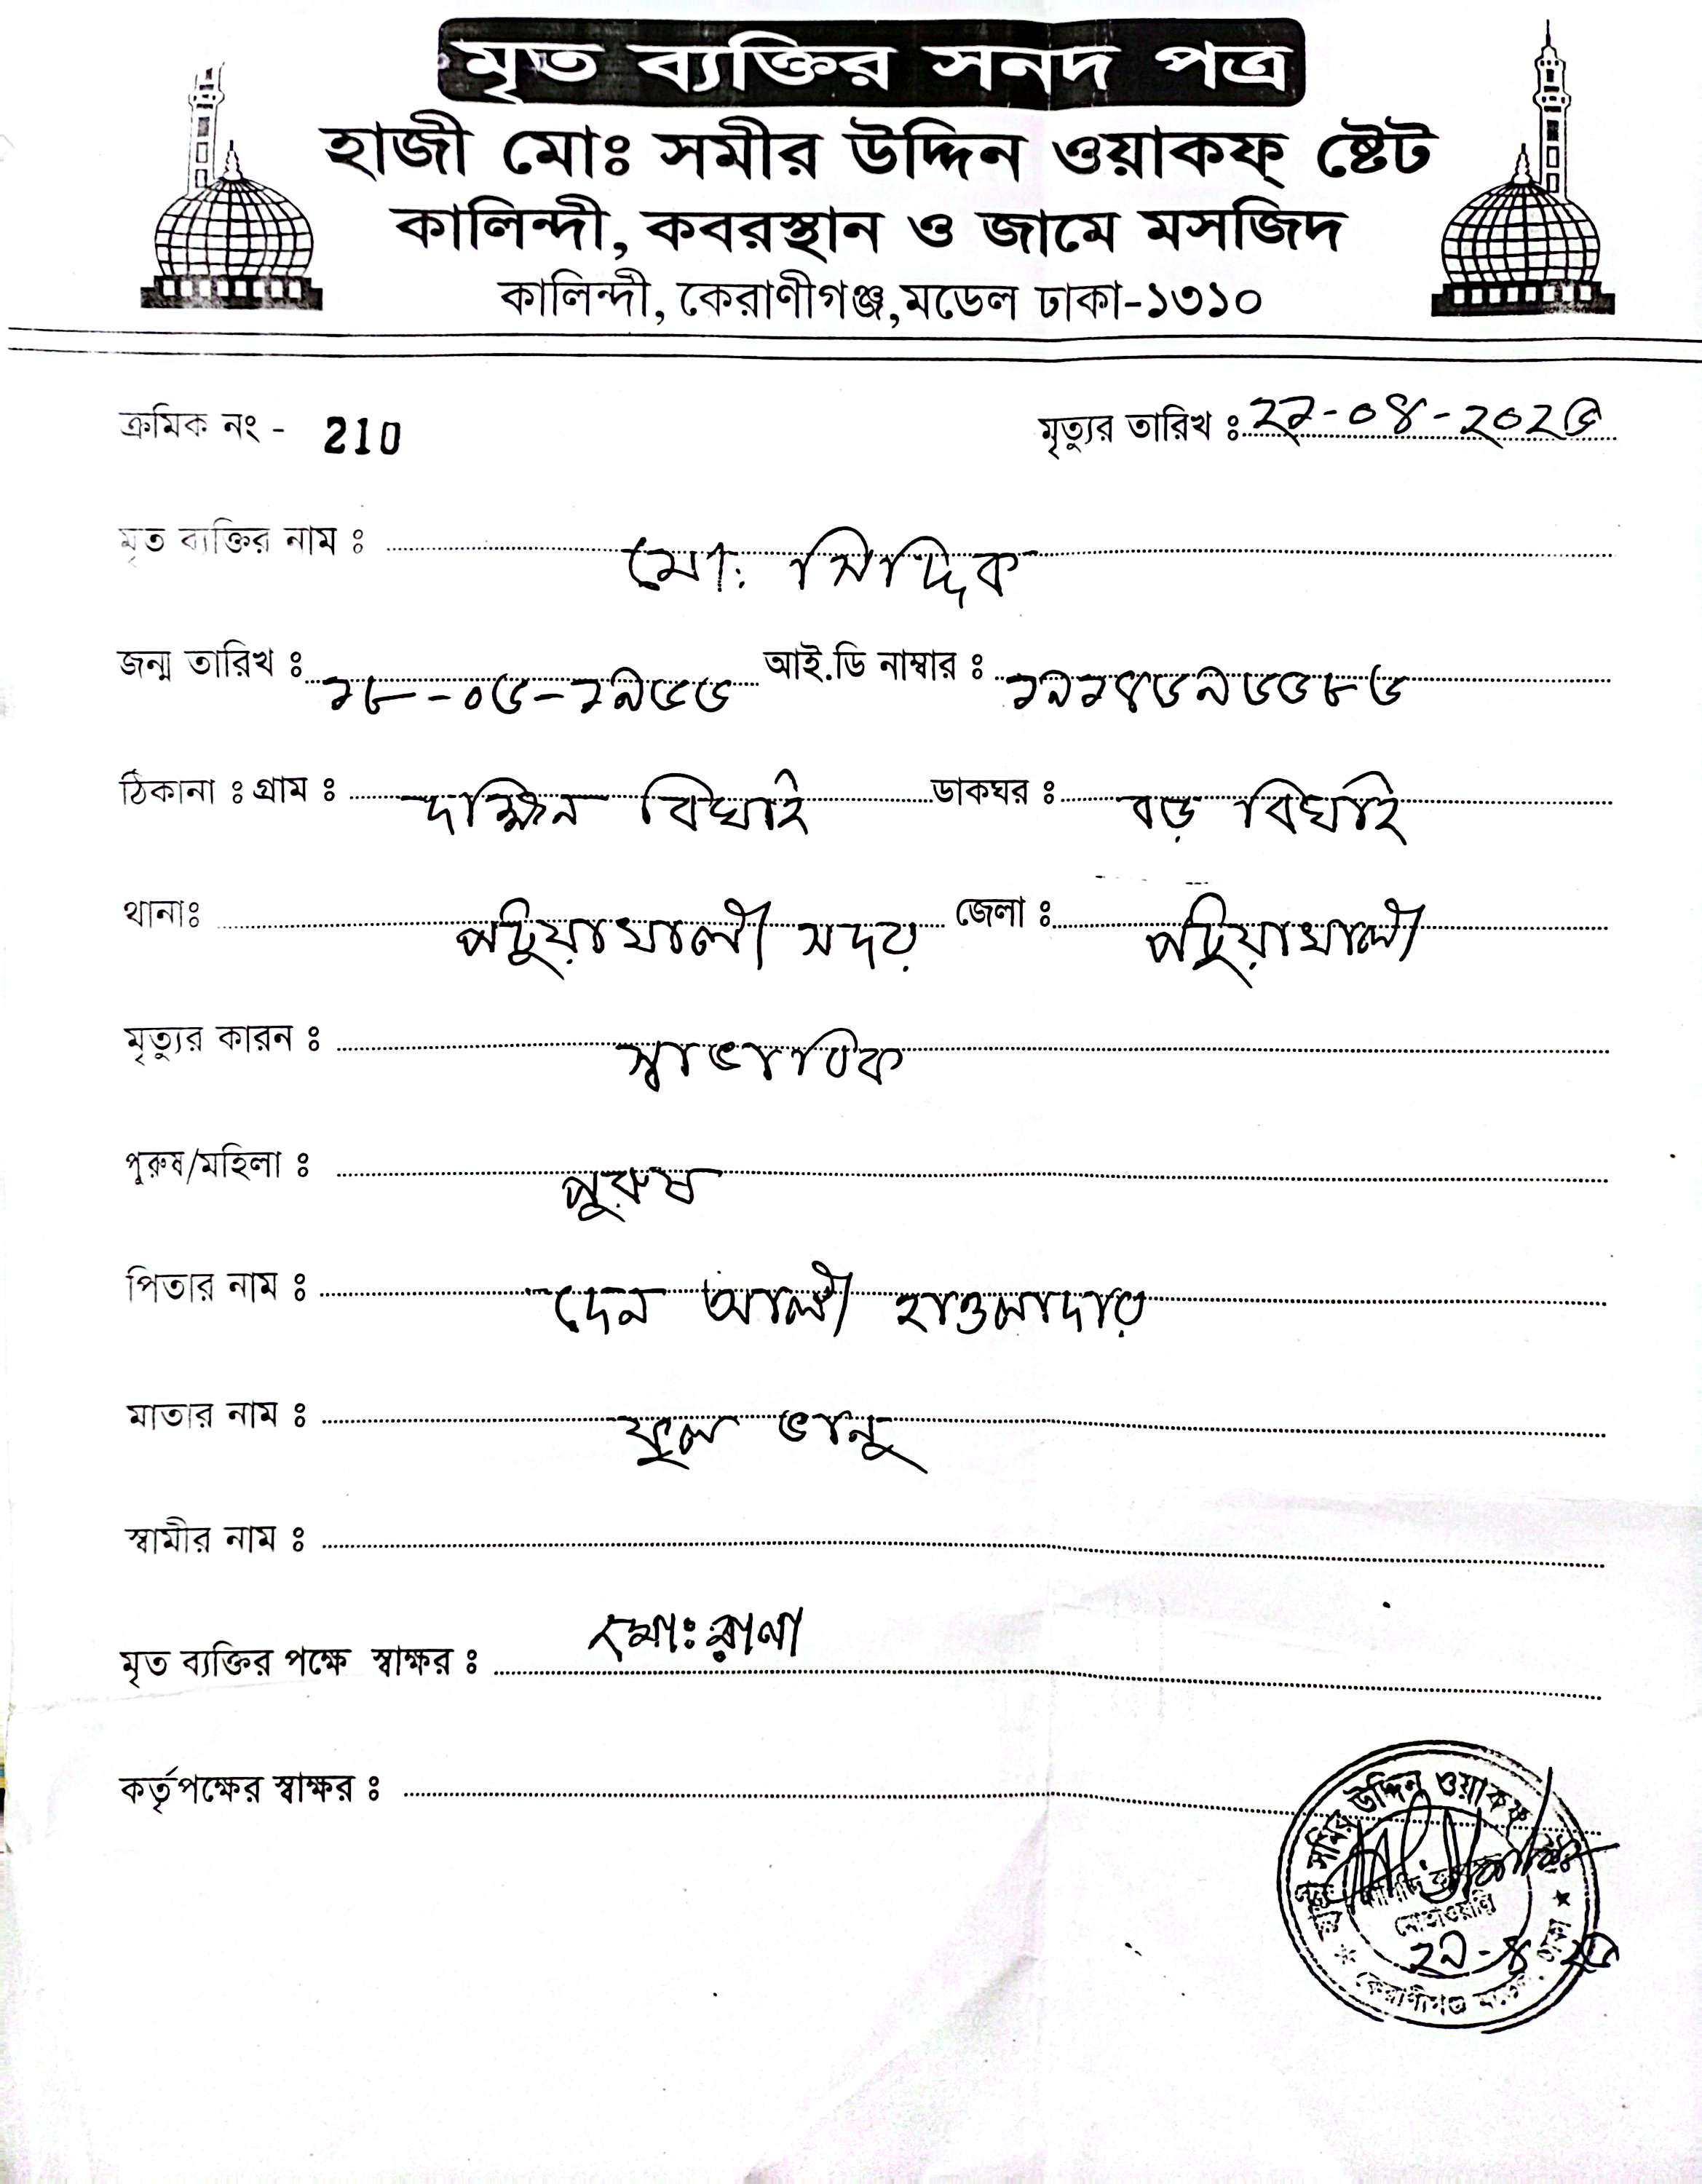 মৃত ব্যক্তির সনদ পত্র
হাজী মোঃ সমীর উদ্দিন ওয়াকফ্ ষ্টেট
কালিন্দী, কবরস্থান ও জামে মসজিদ
কালিন্দী, কেরাণীগঞ্জ,মডেল ঢাকা-১৩১০
ক্রমিক নং - 210 মৃত্যুর তারিখ ঃ
মৃত ব্যক্তির নাম ঃ মো: সিদ্দিক
জন্ম তারিখ ঃ আই.ডি নাম্বার ঃ
ঠিকানা ঃ গ্রাম ঃ দক্ষিন বিঘাই ডাকঘর ঃ বড় বিঘাই
থানাঃ পটুয়াখালী সদর জেলা ঃ পটুয়াখালী
মৃত্যুর কারন ঃ স্বাভাবিক
পুরুষ/মহিলা ঃ পুরুষ
পিতার নাম ঃ দেন আলী হাওলাদার
মাতার নাম ঃ ফুল ভানু
স্বামীর নাম ঃ
মৃত ব্যক্তির পক্ষে স্বাক্ষর ঃ মোঃ রানা
কর্তৃপক্ষের স্বাক্ষর ঃ
সমির উদ্দিন ওয়াকফ্
মোতাওয়াল্লি